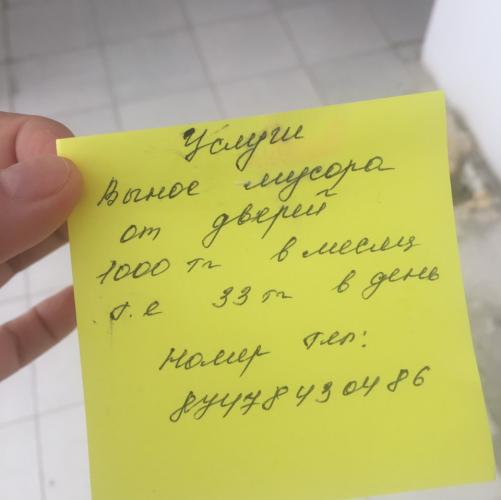 Услуги
Вынос мусора
от дверей
1000 тг в месяц
т.е 33 тг в день
Номер тел:
87478430486